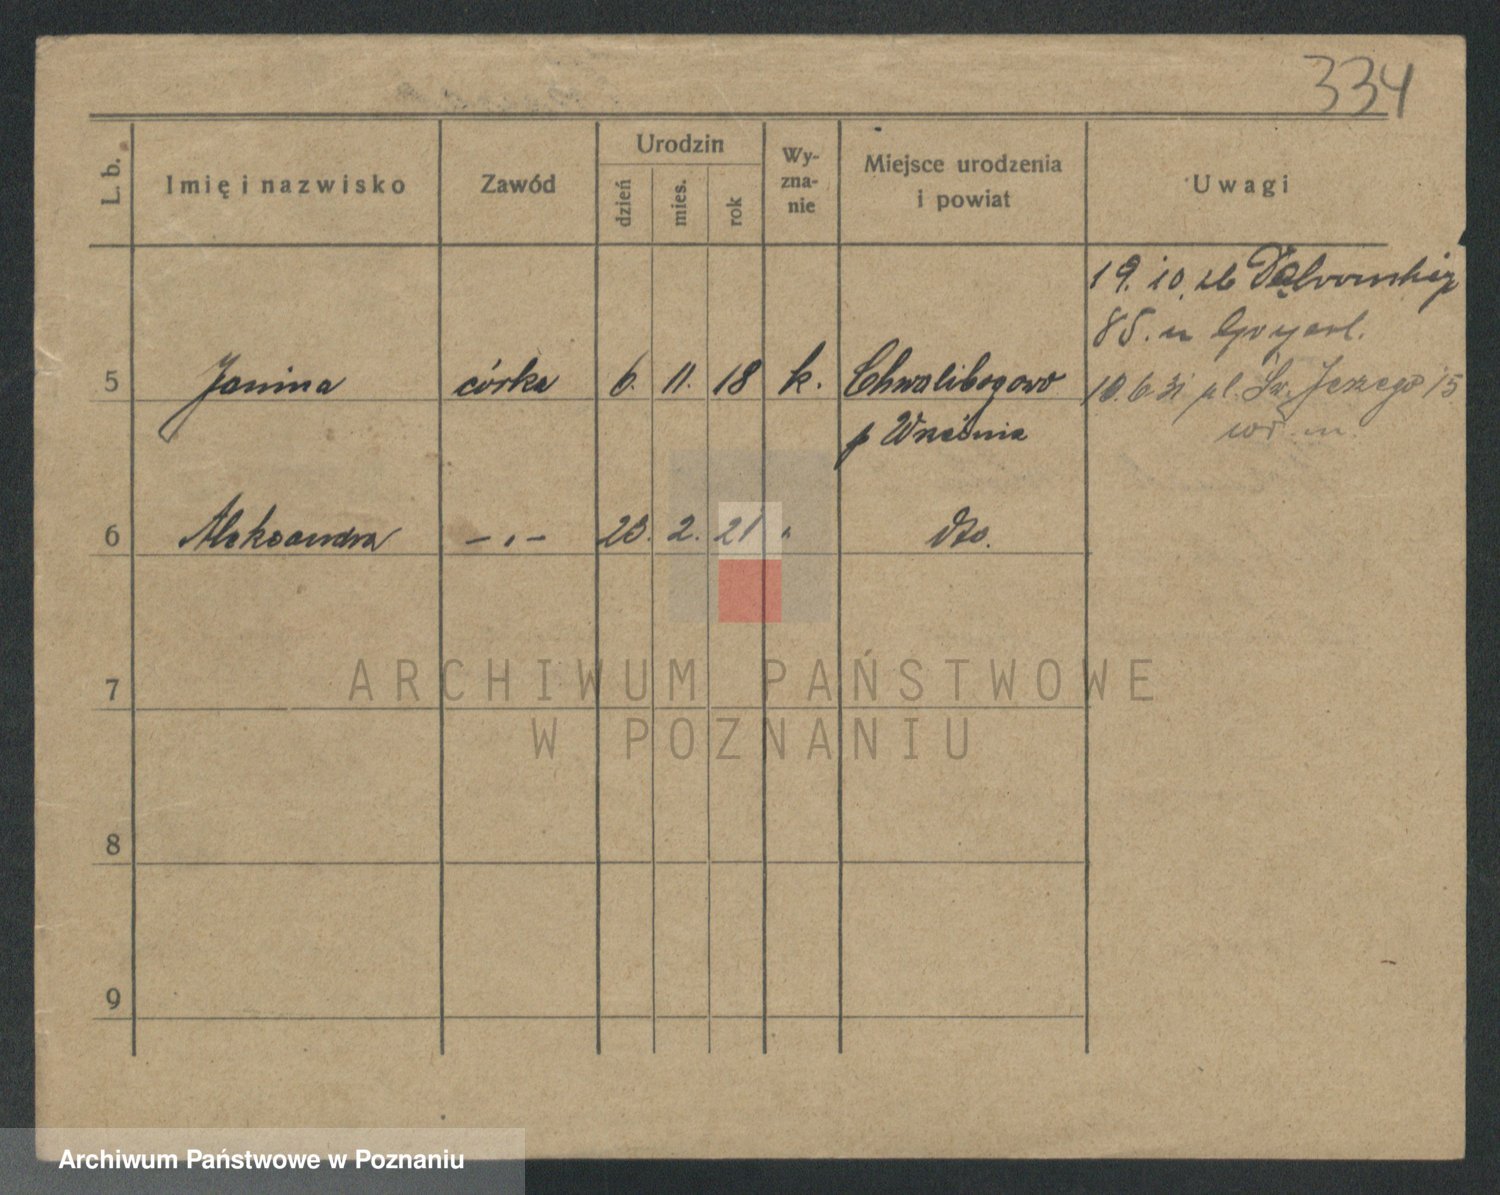 334
L. b.
Imię i nazwisko
Zawód
Urodzin
dzień
mies.
rok
Wy-
zna-
nie
Miejsce urodzenia
i powiat
Uwagi
19. 10. 26 Dąbrowskiego
85. u
5 Janina córka 6. 11. 18 k. Chwalibogowo
p Września
10. 6. 31 pl. Św. Jerzego 15
6 Aleksandra —„— 23. 2. 21 " dto.
7
8
9
ARCHIWUM PAŃSTWOWE
W POZNANIU
Archiwum Państwowe w Poznaniu